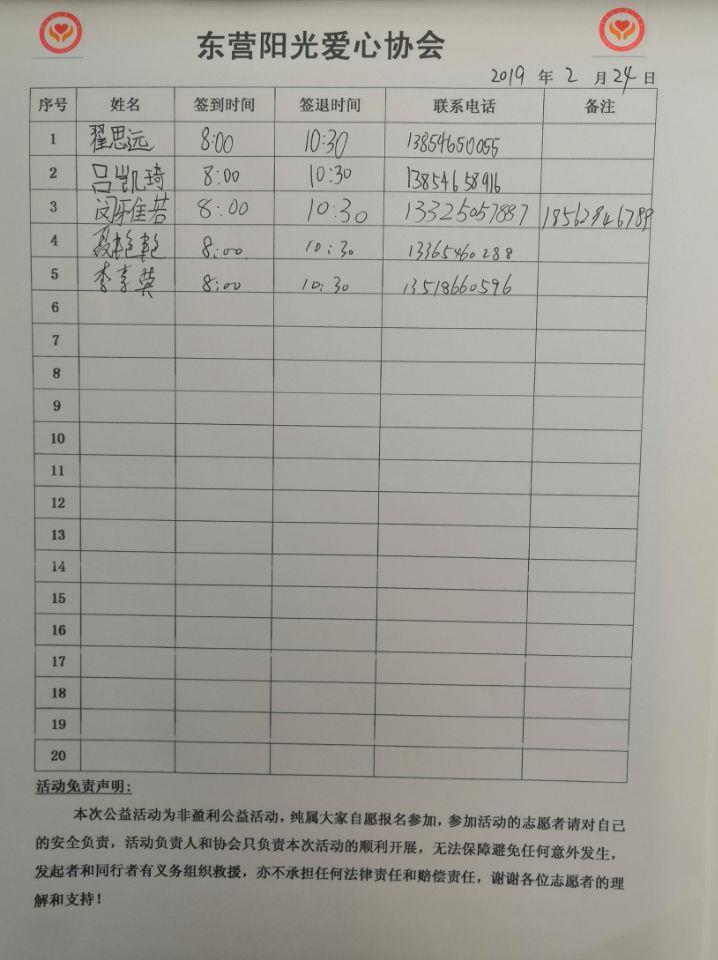 东营阳光爱心协会
2019 年 2 月 24 日
序号 姓名 签到时间 签退时间 联系电话 备注
1 翟思远 8:00 10:30 13854650055
2 吕凯琦 8:00 10:30 13854658916
3 闵雅茹 8:00 10:30 13325057887 18562846789
4 聂艳艳 8:00 10:30 13365460288
5 李享英 8:00 10:30 13518660596
6
7
8
9
10
11
12
13
14
15
16
17
18
19
20
活动免责声明:
本次公益活动为非盈利公益活动，纯属大家自愿报名参加，参加活动的志愿者请对自己
的安全负责，活动负责人和协会只负责本次活动的顺利开展，无法保障避免任何意外发生，
发起者和同行者有义务组织救援，亦不承担任何法律责任和赔偿责任，谢谢各位志愿者的理
解和支持！